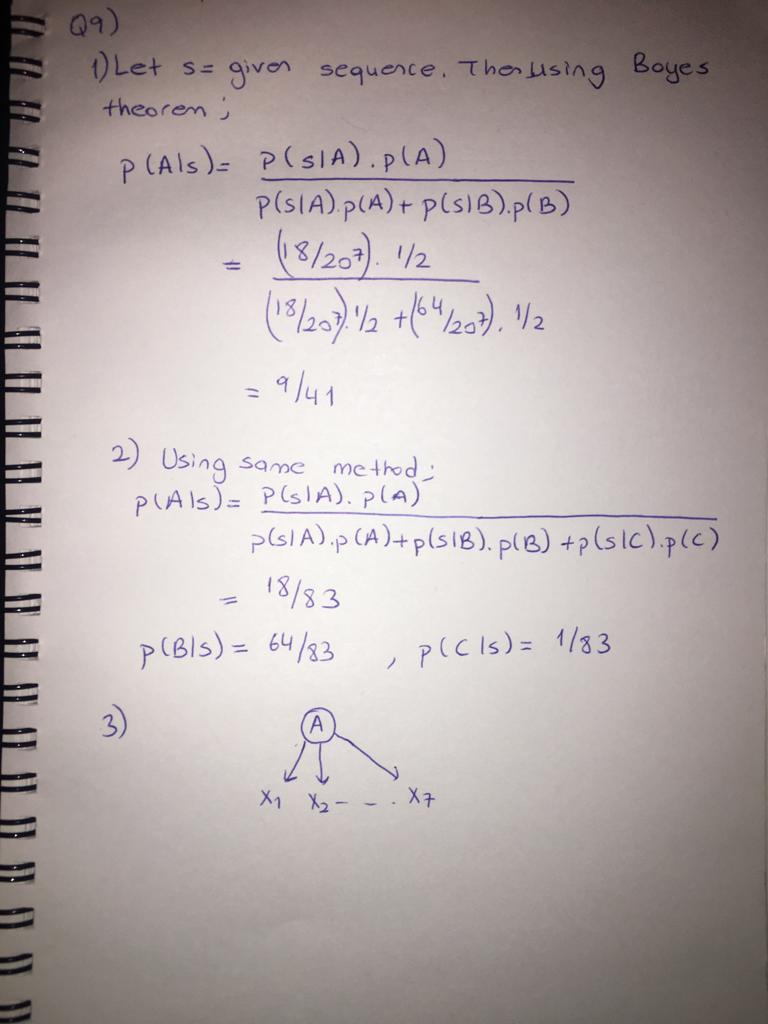 Q9)
1) Let s = given sequence. Then Using Bayes
theorem;
p(A|s) = p(s|A).p(A)
p(s|A).p(A) + p(s|B).p(B)
= (18/20⁷). 1/2
(18/20⁷).1/2 + (64/20⁷). 1/2
= 9/41
2) Using same method;
p(A|s) = p(s|A). p(A)
p(s|A).p(A)+p(s|B).p(B) +p(s|C).p(C)
= 18/83
p(B|s) = 64/83 , p(C|s) = 1/83
3)
A
X1 X2 - - . X7